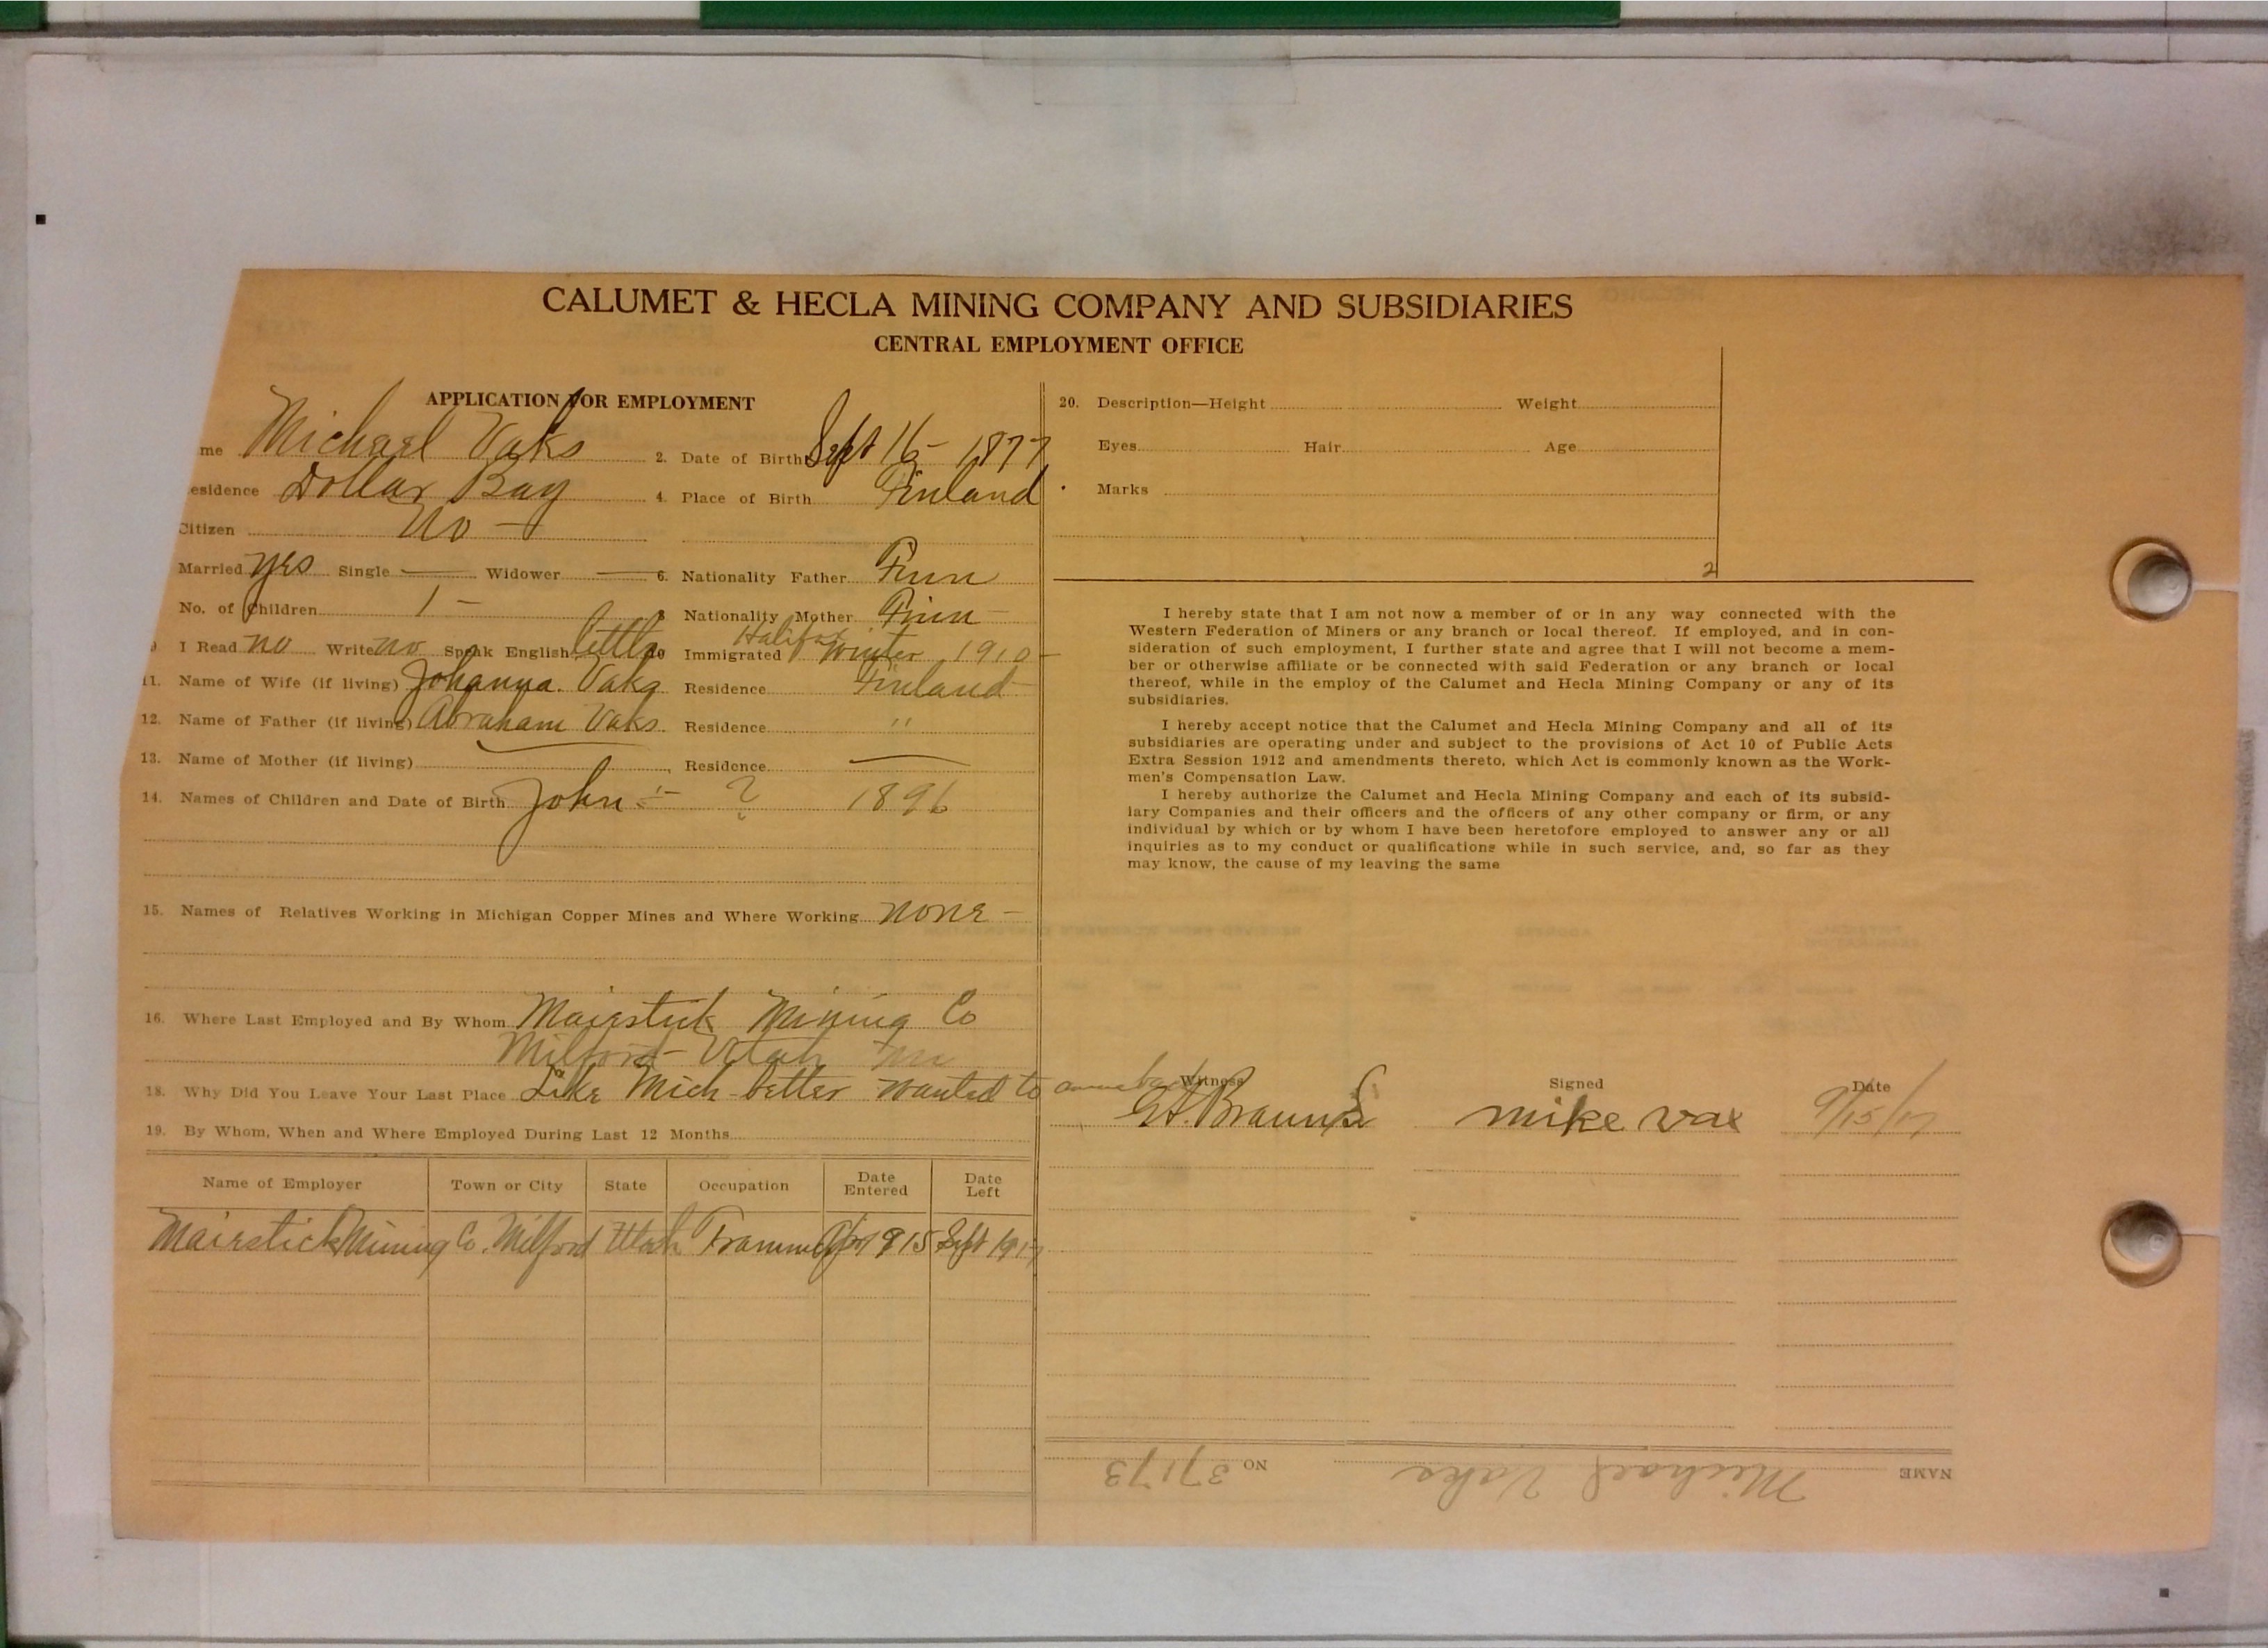 CALUMET & HECLA MINING COMPANY AND SUBSIDIARIES
CENTRAL EMPLOYMENT OFFICE
APPLICATION FOR EMPLOYMENT
me Michael Vaks 2. Date of Birth Sept 16 - 1877
esidence Dollar Bay 4. Place of Birth Finland
Citizen No -
Married yes Single — Widower — 6. Nationality Father Finn
No. of Children 1 - 8 Nationality Mother Finn -
I Read no Write no Speak English little 10 Immigrated Halifax Winter 1910 -
11. Name of Wife (if living) Johanna Vaks Residence Finland
12. Name of Father (if living) Abraham Vaks Residence "
13. Name of Mother (if living) Residence —
14. Names of Children and Date of Birth John - ? 1896
15. Names of Relatives Working in Michigan Copper Mines and Where Working none -
16. Where Last Employed and By Whom Mairstick Mining Co
Milford - Utah
18. Why Did You Leave Your Last Place Like Mich - better wanted to
19. By Whom, When and Where Employed During Last 12 Months
Name of Employer Town or City State Occupation Date Entered Date Left
Mairstick Mining Co. Milford Utah Trammer 1915 Sept 1917
20. Description—Height Weight
Eyes Hair Age
Marks
2
I hereby state that I am not now a member of or in any way connected with the
Western Federation of Miners or any branch or local thereof. If employed, and in con-
sideration of such employment, I further state and agree that I will not become a mem-
ber or otherwise affiliate or be connected with said Federation or any branch or local
thereof, while in the employ of the Calumet and Hecla Mining Company or any of its
subsidiaries.
I hereby accept notice that the Calumet and Hecla Mining Company and all of its
subsidiaries are operating under and subject to the provisions of Act 10 of Public Acts
Extra Session 1912 and amendments thereto, which Act is commonly known as the Work-
men's Compensation Law.
I hereby authorize the Calumet and Hecla Mining Company and each of its subsid-
iary Companies and their officers and the officers of any other company or firm, or any
individual by which or by whom I have been heretofore employed to answer any or all
inquiries as to my conduct or qualifications while in such service, and, so far as they
may know, the cause of my leaving the same
Witness Signed Date
mike vax 9/15/17
NAME Michael Vaks NO 37173